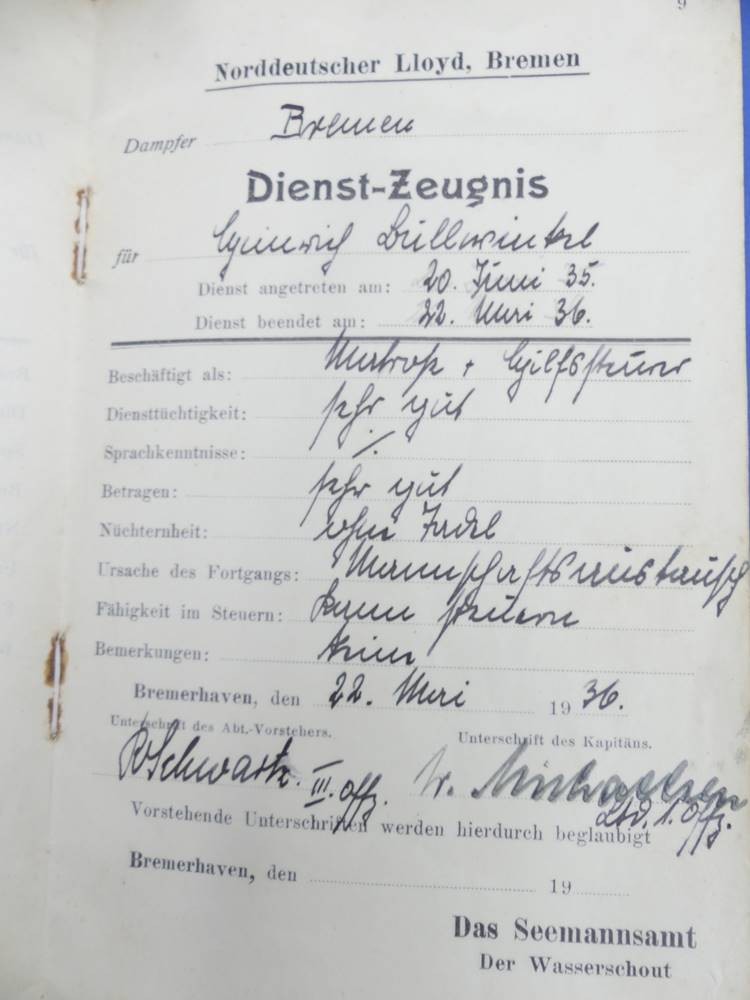 9
Norddeutscher Lloyd, Bremen
Dampfer Bremen
Dienst-Zeugnis
für Heinrich Büllwinkel
Dienst angetreten am: 20. Juni 35.
Dienst beendet am: 22. Mai 36.
Beschäftigt als: Matrose + Hilfssteurer
Diensttüchtigkeit: sehr gut
Sprachkenntnisse: /.
Betragen: sehr gut
Nüchternheit: ohne Tadel
Ursache des Fortgangs: Mannschaftsaustausch
Fähigkeit im Steuern: kann steuern
Bemerkungen: keine
Bremerhaven, den 22. Mai 1936.
Unterschrift des Abt.-Vorstehers. Unterschrift des Kapitäns.
Schwartz. III. Offz. Michaelsen
Ltd. 1. Offz.
Vorstehende Unterschriften werden hierdurch beglaubigt
Bremerhaven, den 19
Das Seemannsamt
Der Wasserschout